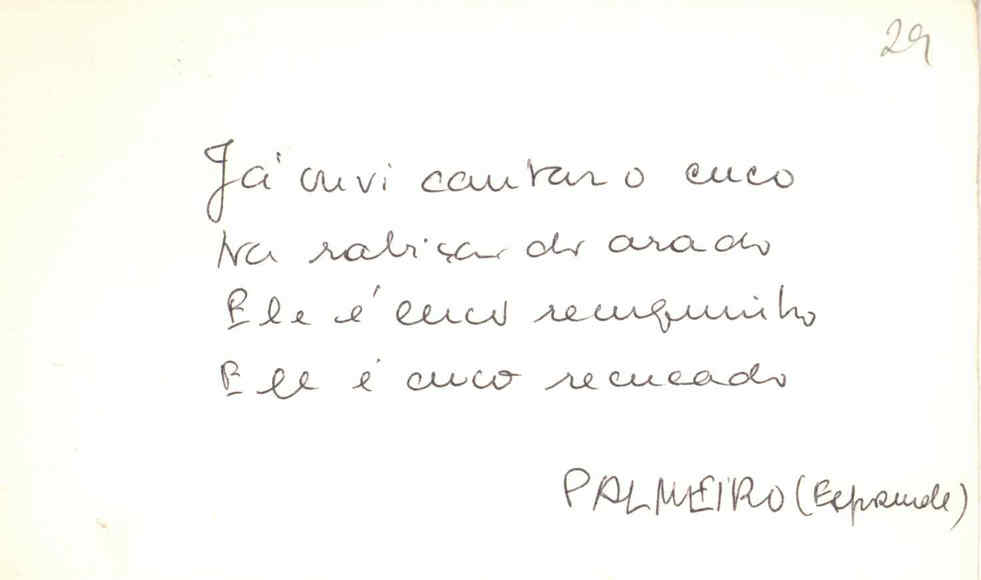 29
Já ouvi cantar o cuco
Na rabiça do arado
Ele é cuco
Ele é cuco recucado
PALMEIRO (Espaunde)